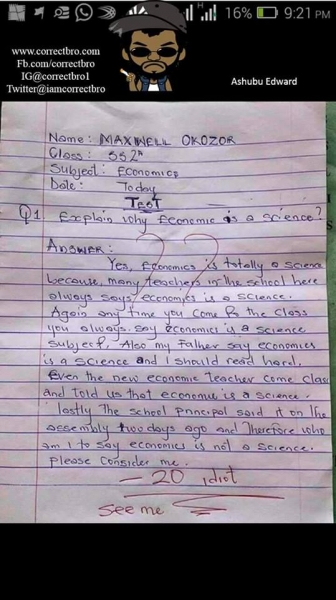 16% 9:21 PM
www.correctbro.com
Fb.com/correctbro
IG@correctbro1
Twitter@iamcorrectbro
Ashubu Edward
Name: MAXWELL OKOZOR
Class: SS2A
Subject: Economics
Date: Today
TEST
Q1 Explain why Economic is a science?
ANSWER:
Yes, Economics is totally a science
because, many teachers in the school here
always says economics is a science.
Again any time you come to the class
you always say economics is a science
subject, Also my father say economics
is a science and I should read hard.
Even the new economic teacher come class
and told us that economic is a science.
lastly The school principal said it on the
assembly two days ago and Therefore who
am I to say economics is not a science.
please consider me.
- 20 idiot
See me